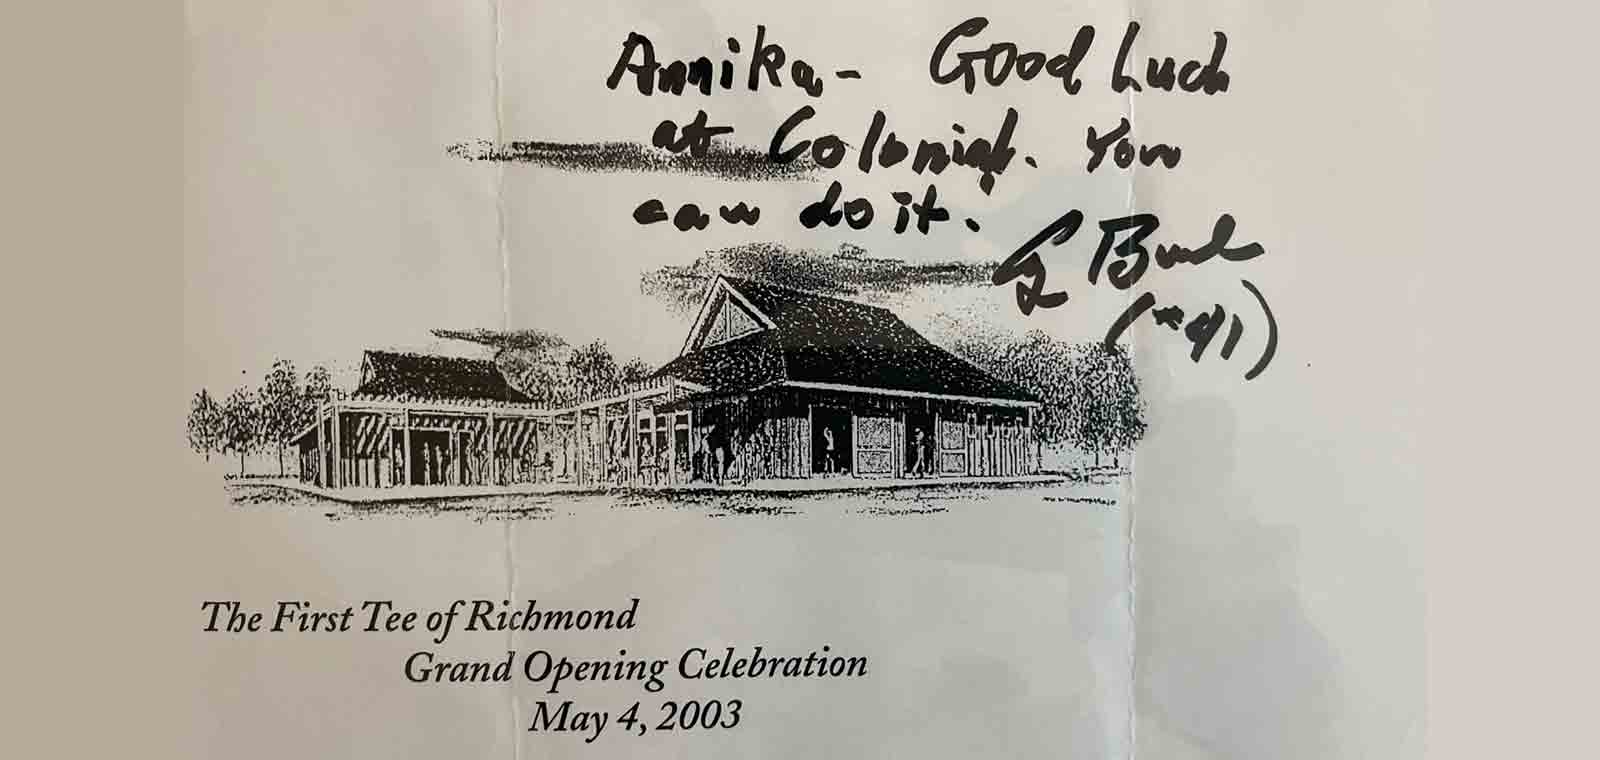 Annika - Good Luck
at Colonial. You
can do it.
G Bush
(#41)
The First Tee of Richmond
Grand Opening Celebration
May 4, 2003